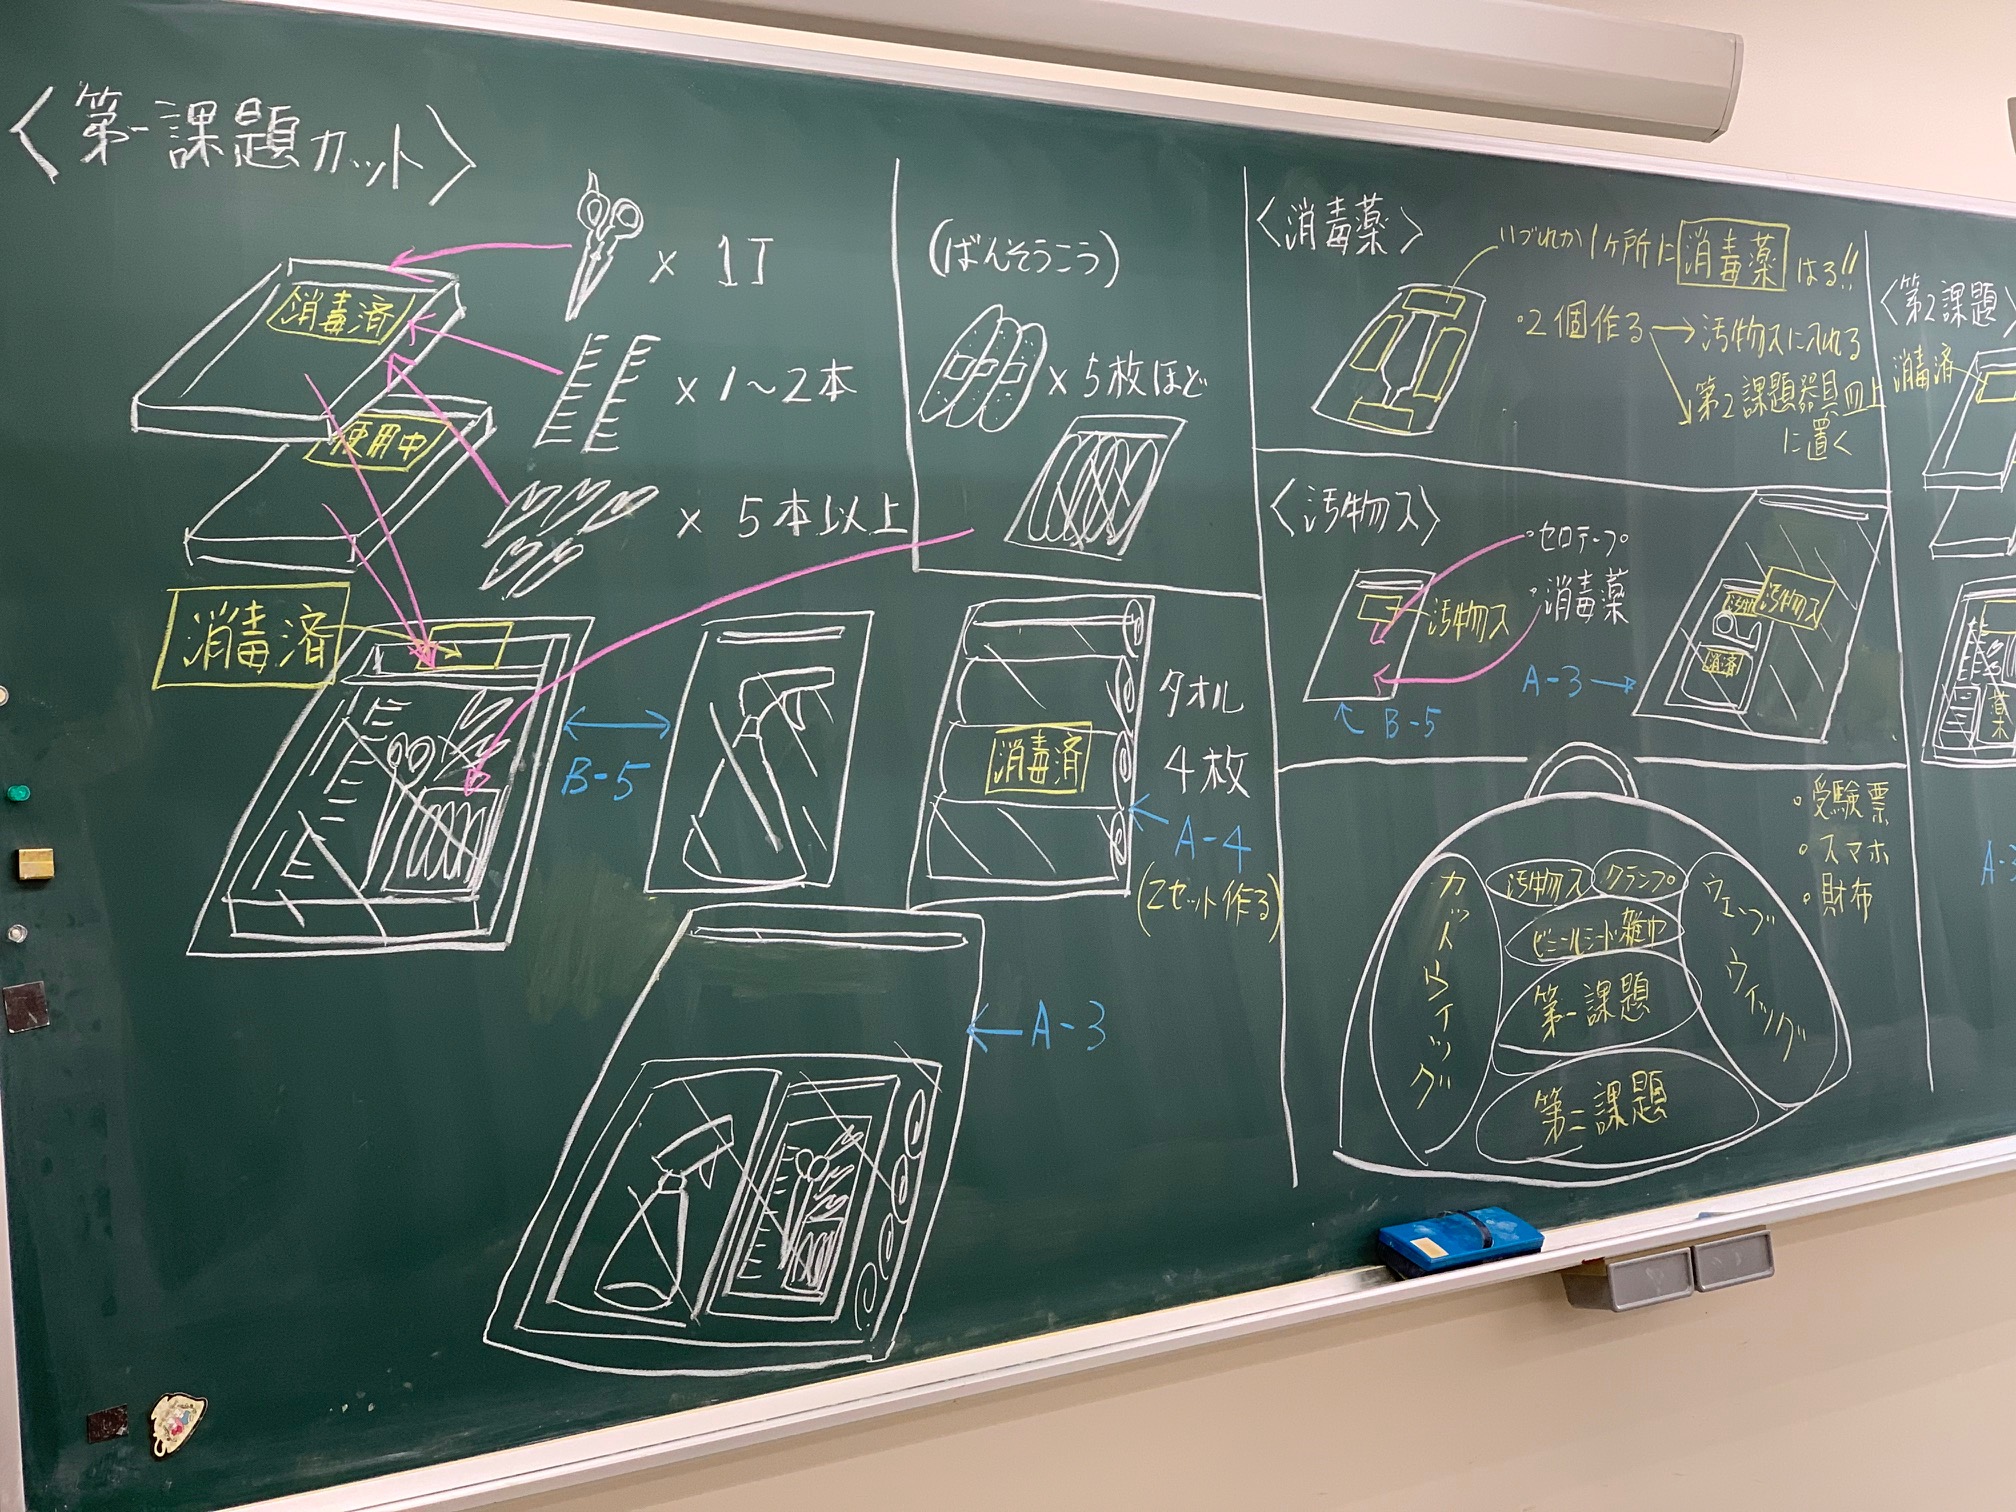 〈第一課題カット〉
× 1丁
消毒済
× 1〜2本
使用中
× 5本以上
消毒済
B-5
(ばんそうこう)
× 5枚ほど
消毒済
タオル
4枚
A-4
(2セット作る)
A-3
〈消毒薬〉
いづれか1ヶ所に消毒薬はる!!
・2個作る→汚物入に入れる
第2課題器具皿上
に置く
〈汚物入〉
・セロテープ
・消毒薬
汚物入
B-5
A-3
汚物入
消毒済
・受験票
・スマホ
・財布
汚物入
クランプ
ビニールシート
雑巾
カットウィッグ
ウェーブウィッグ
第一課題
第二課題
〈第2課題〉
消毒済
薬
A-3